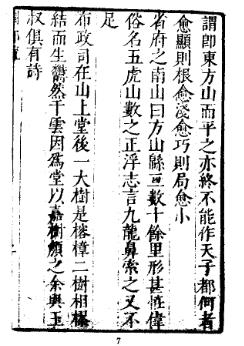 謂卽東方山而平之亦終不能作天子都何者
愈顯則根愈淺愈巧則局愈小
省府之南山曰方山緜亘數十餘里形甚恠偉
俗名五虎山數之正浮志言九龍鼻索之又不
足
布政司在山上堂後一大樹是榕樟二樹相樛
結而生欝然干雲因爲堂以嘉樹顏之余與玉
叔俱有詩
7